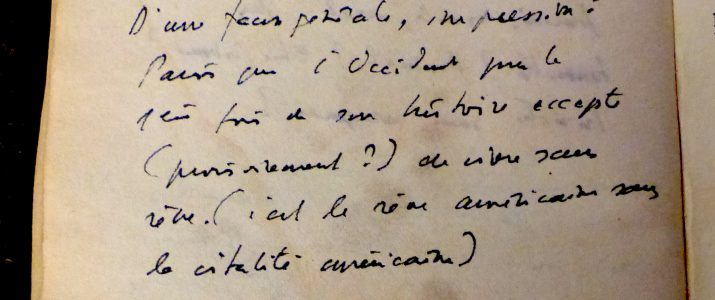 D'une façon générale, impression :
Paris que l'Occident pour la
1ère fois de son histoire accepte
(provisoirement ?) de vivre sans
rêve. (c'est le rêve américain sans
la vitalité américaine)